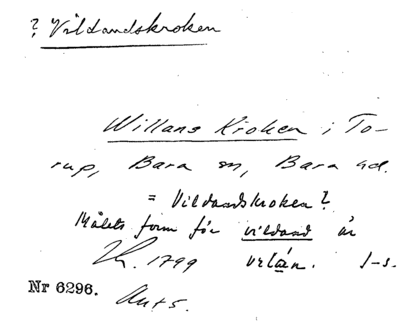 ? Vildandskroken
Willans Kroken i To-
rup, Bara sn, Bara hd.
= Vildandskroken?
Målets form för vildand är
1799
Nr 6296.